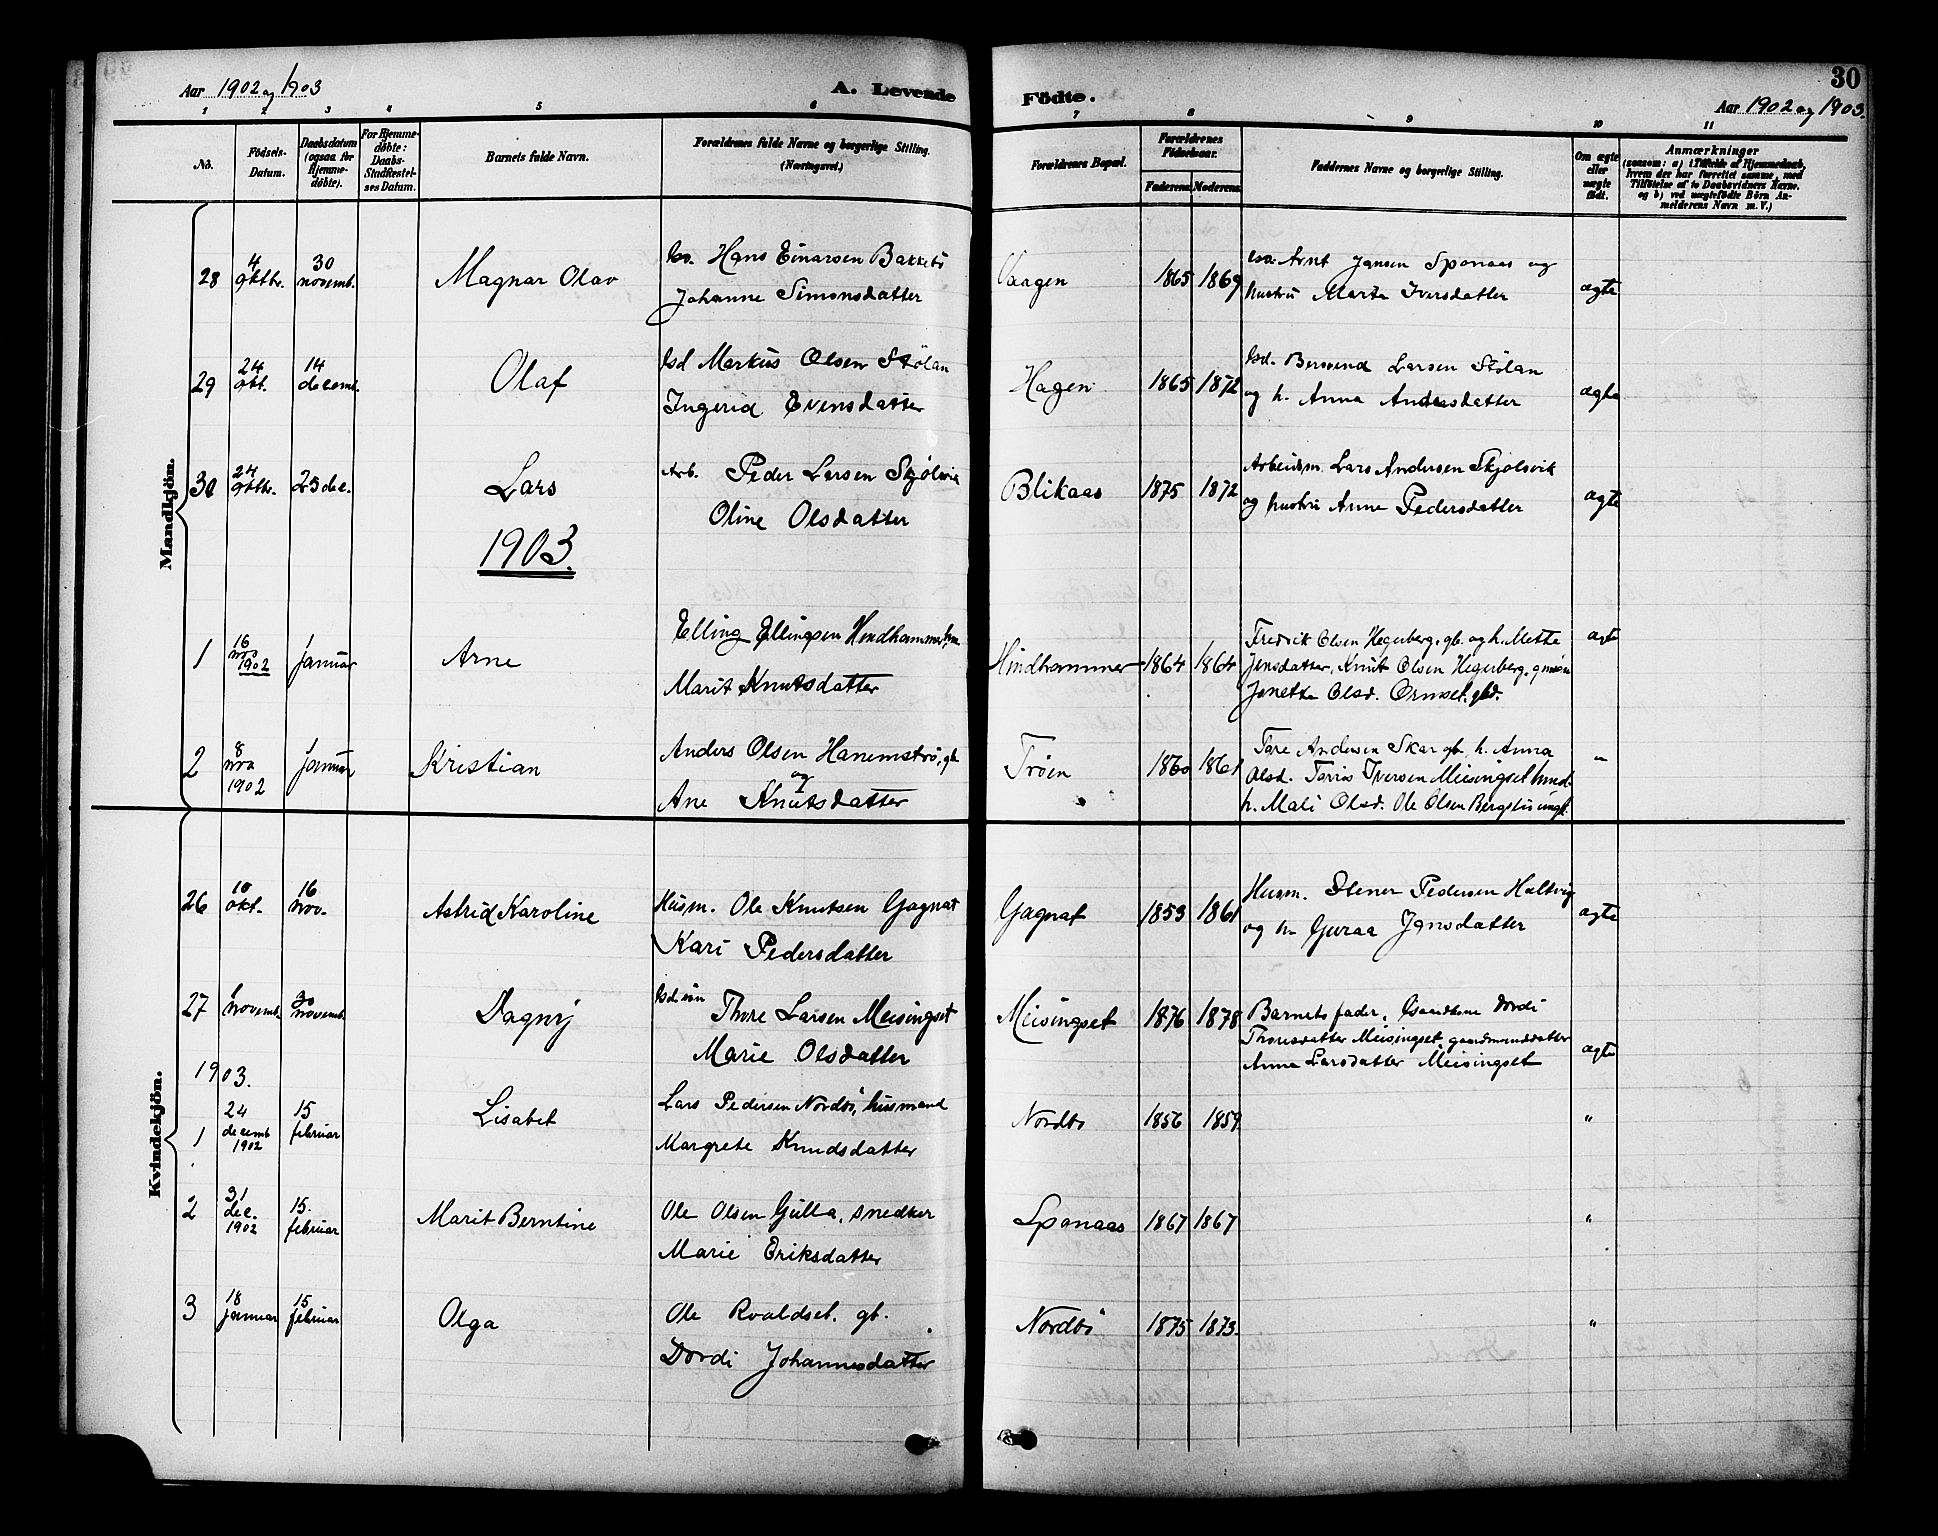 Aar 1902 og 1903
A. Levende Födte.
30
Aar 1902 og 1903.
1 2 3 4 5 6 7 8 9 10 11
No.
Födsels-Datum.
Daabsdatum (ogsaa for Hjemme-döbte).
For Hjemme-döbte: Daabs-Stadfæstelses Datum.
Barnets fulde Navn.
Forældrenes fulde Navne og borgerlige Stilling. (Næringsvei.)
Forældrenes Bopæl.
Forældrenes Födselsaar.
Faderens. Moderens.
Faddernes Navne og borgerlige Stilling.
Om ægte eller uægte födt.
Anmærkninger
(saasom: a) i Tilfælde af Hjemmedaab,
hvem der har forrettet samme, med
Tilföielse af to Daabsvidners Navne.
og b) ved uægtefödte Börn An-
melderens Navn m. V.)
Mandkjön.
28
4 oktbr.
30 novemb.
Magnar Olav
Hans Einarsen Bakkebö
Johanne Simonsdatter
Vaagen
1865 1869
Arnt Jansen Sponaas og
hustru Marta Iversdatter
ægte
29
24 okt.
14 decemb.
Olaf
Markus Olsen Stölan
Ingerid Evensdatter
Hagen
1865 1872
Larsen Stölan
og h. Anna Andersdatter
ægte
30
24 oktbr.
25 dec.
Lars
Arb. Peder Larsen Skjölsvik
Oline Olsdatter
Blikaas
1875 1872
Arbeidsm. Lars Andersen Skjölsvik
og hustru Anne Pedersdatter
ægte
1903.
1
16 nov 1902
januar
Arne
Elling Ellingsen Hindhammer
Marit Knutsdatter
Hindhammer
1864 1864
Fredrik Olsen Hegerberg, gb. og h. Mette
Jensdatter, Knut Olsen Hegerberg,
Jonetta Olsd.
ægte
2
8 nov 1902
januar
Kristian
Anders Olsen Hanemströ, gb.
og
Ane Knutsdatter
Tröen
1860 1861
Tore Andersen Skar gb. h. Anna
Olsd. Iversen Meisingset
h. Mali Olsd. Ole Olsen
"
Kvindekjön.
26
10 okt.
16 nov.
Astrid Karoline
Husm. Ole Knutsen Gagnat
Kari Pedersdatter
Gagnat
1853 1861
Husm. Stener Pedersen Haltvig
og h. Guraa Jansdatter
ægte
27
1 novemb.
30 novemb.
Dagny
Thore Larsen Meisingset
Marie Olsdatter
Meisingset
1876 1878
Barnets fader, Dordi
Thoresdatter Meisingset, gaardmandsdatter
Anna Larsdatter Meisingset
ægte
1903.
1
24 decemb 1902
15 februar
Lisabet
Lars Pedersen Nordbö, husmand
Margrete Knudsdatter
Nordbö
1856 1859
"
2
31 dec. 1902
15. februar
Marit Berntine
Ole Olsen Gulla, snedker
Marie Eriksdatter
Sponaas
1867 1867
"
3
18 januar
15 februar
Olga
Ole Roaldset. gb.
Dordi Johannesdatter
Nordbö
1875 1873.
"